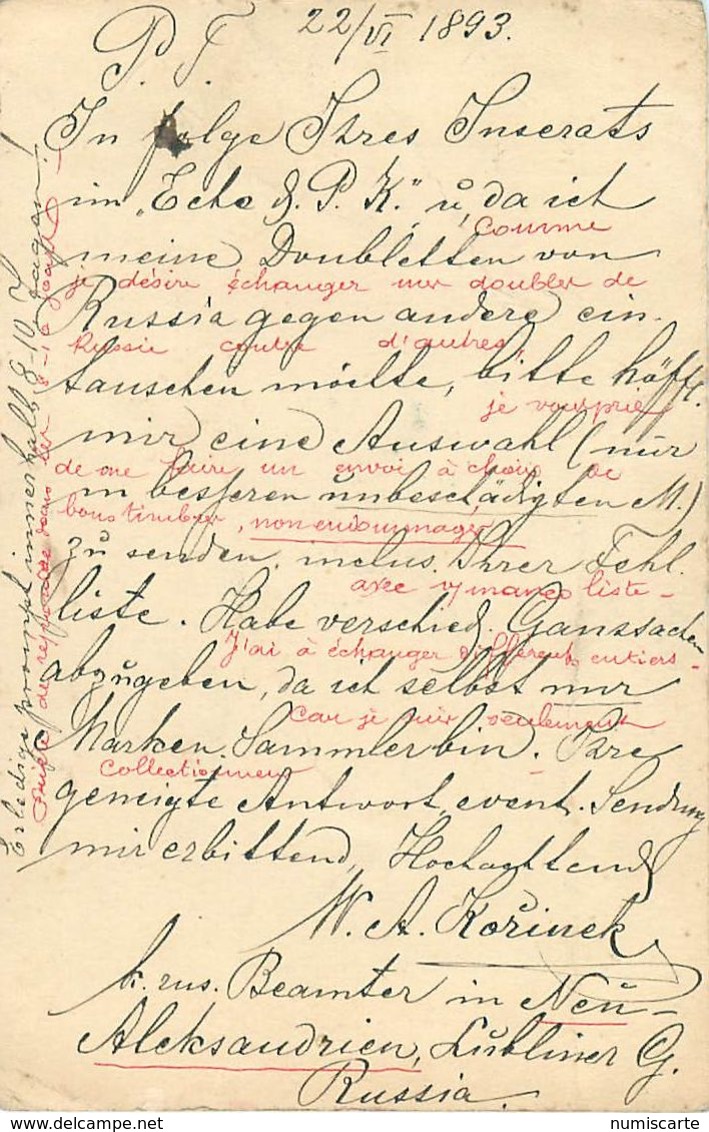 22/VI 1893.
P. T.
In folge Ihres Inserats
im „Echo d. P. K.“ u, da ich
comme
meine Doubletten von
je désire échanger mes doubles de
Russia gegen andere ein-
Russie contre d'autres
tauschen möchte, bitte höffl.
je vous prie
mir eine Auswahl (nur
de me faire un envoi à choix de
in besseren unbeschädigten M.)
bons timbres, non endommagés
zu senden inclus. Ihrer Fehl.
avec v/ manco liste -
liste. Habe verschied. Ganzsachen
J'ai à échanger différents entiers -
abzugeben, da ich selbst nur
car je suis seulement
Marken Sammler bin. Ihre
collectionneur
geneigte Antwort, event. Sendung
mir erbittend, Hochachtend
W. A. Kořinek
k. rus. Beamter in Neu-
Aleksandrien, Lubliner G.
Russia.
Erledige prompt innerhalb 8-10 Tagen!
Prière de répondre dans les 8-10 jours -
numiscarte